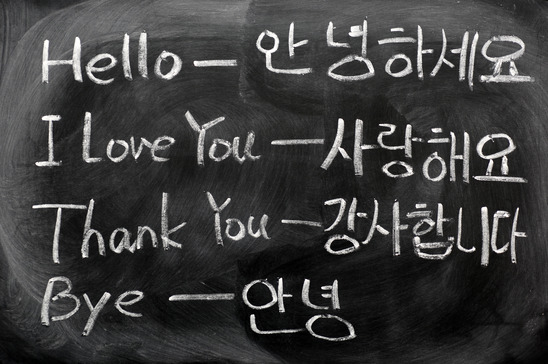 Hello — 안녕하세요
I Love You — 사랑해요
Thank You — 감사합니다
Bye — 안녕